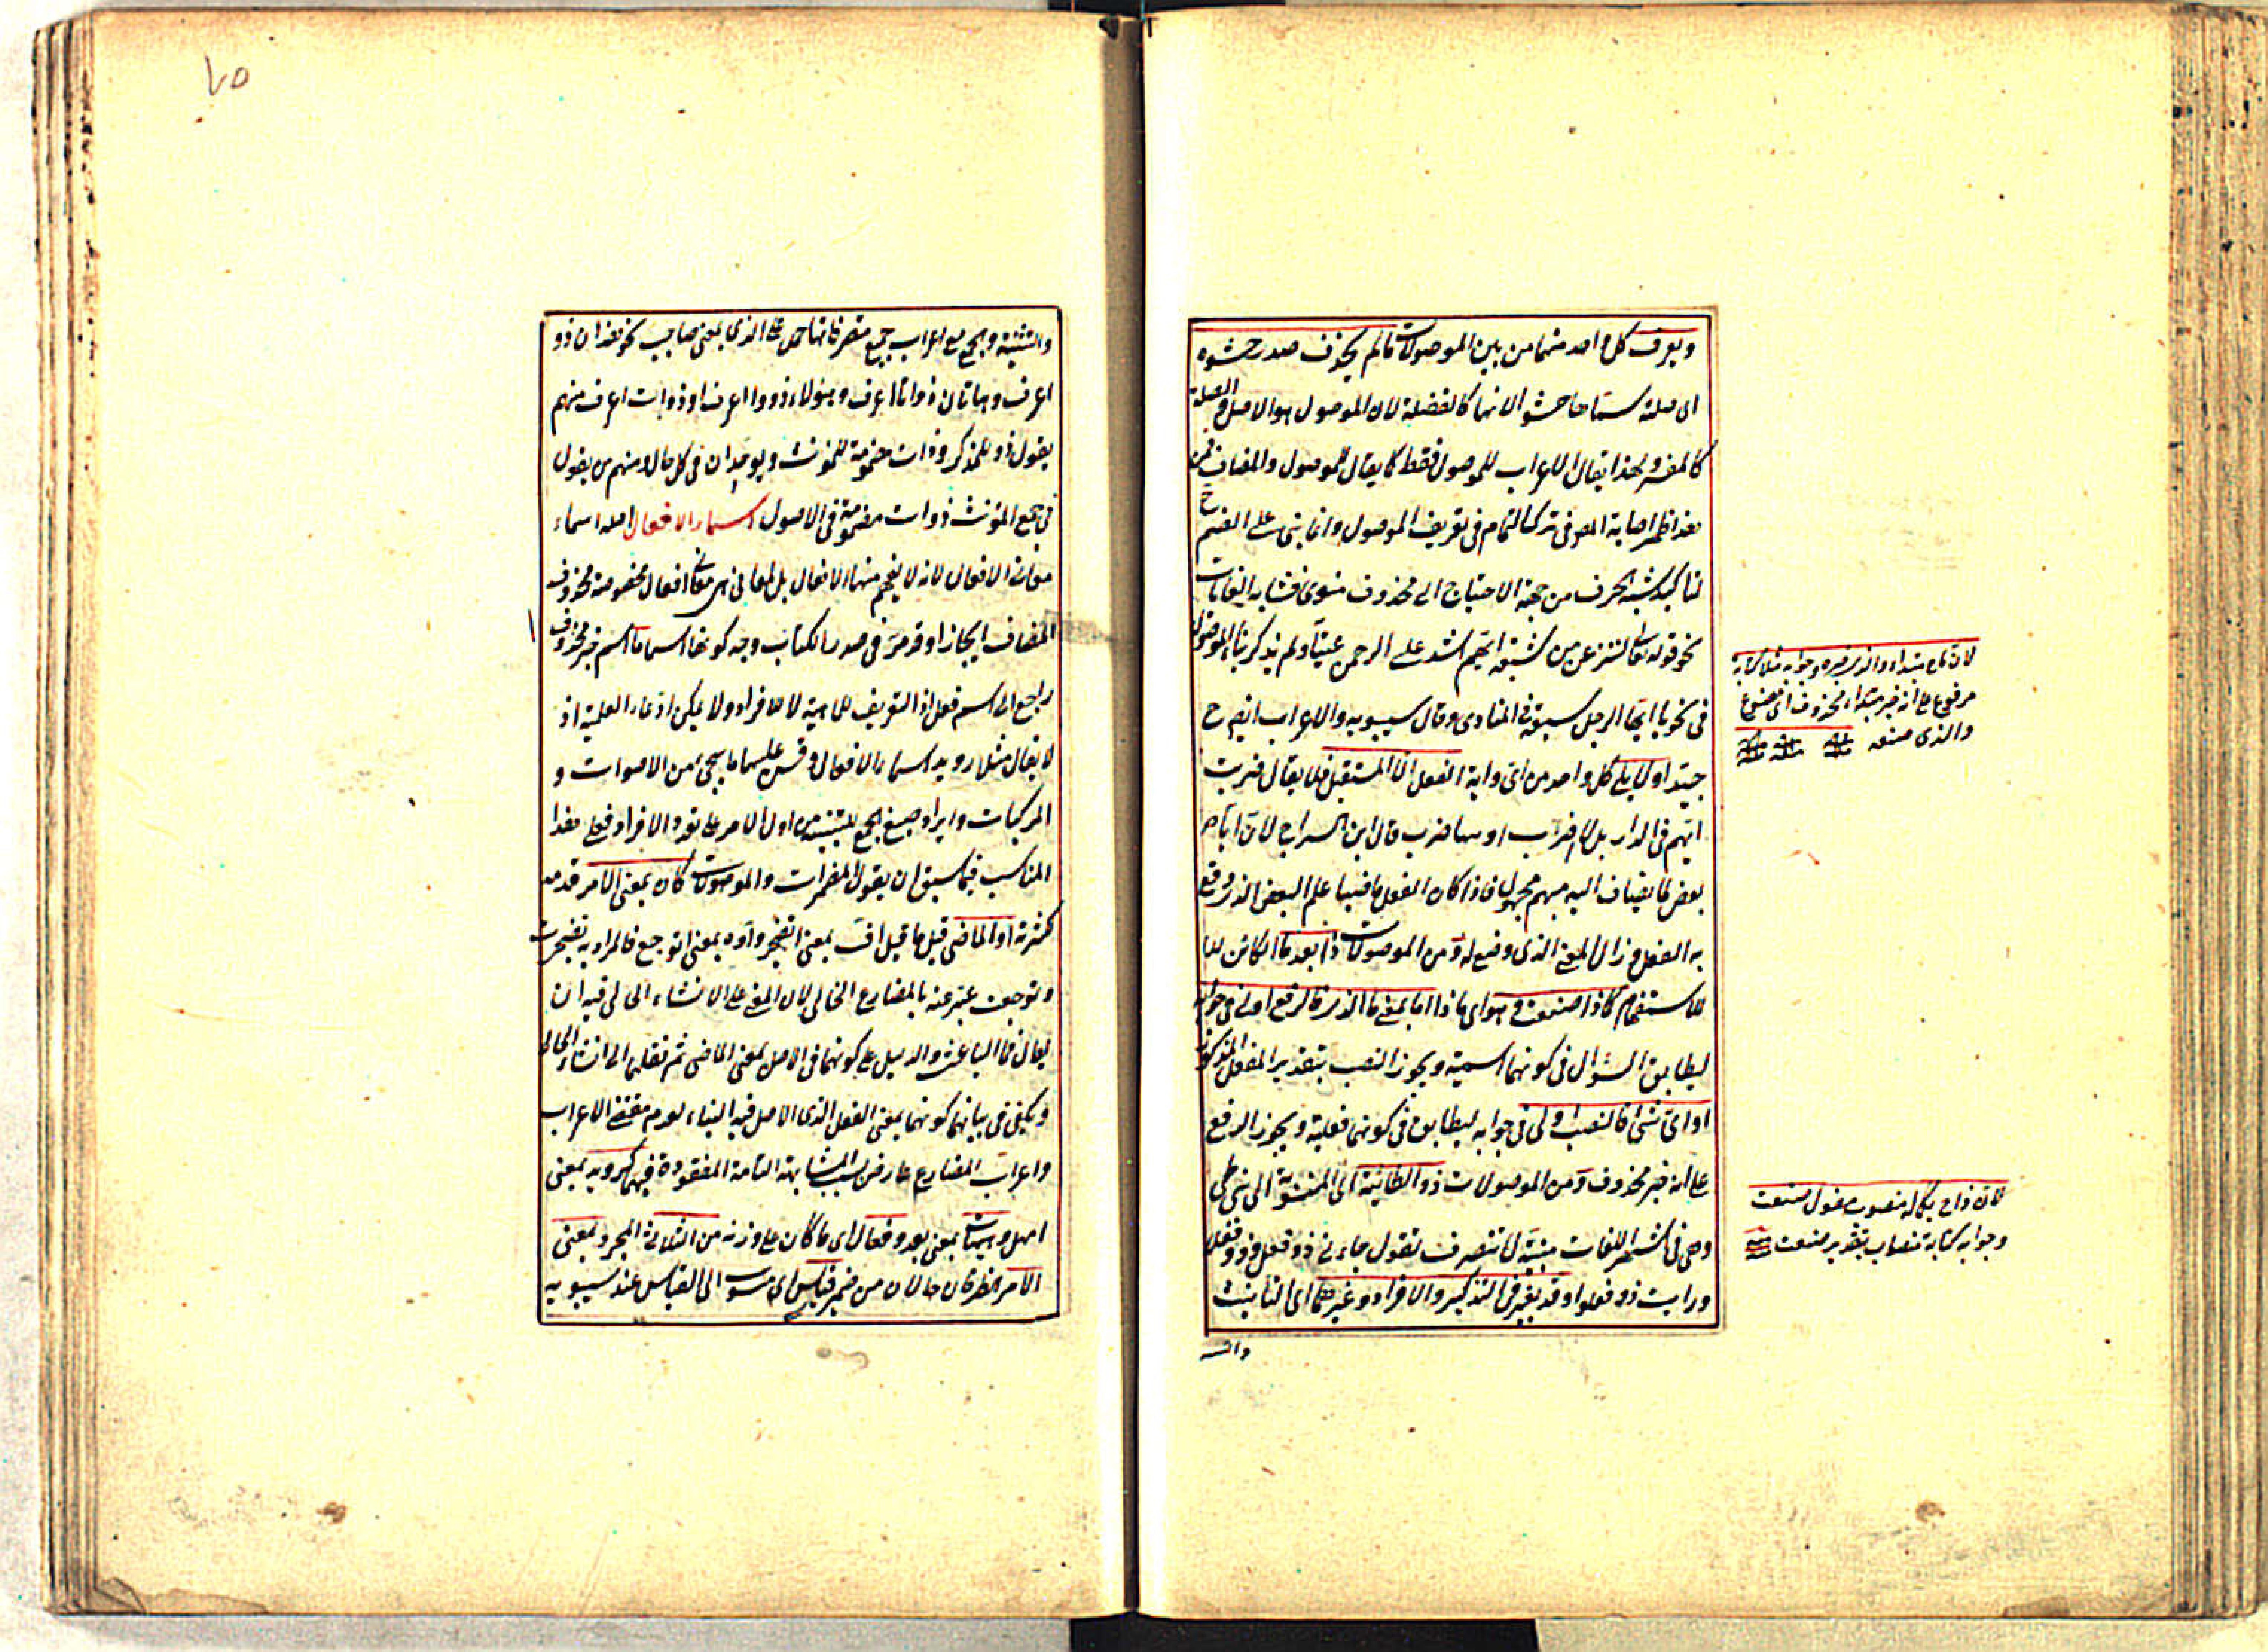 ويعرف كل واحد منهما من بين الموصولات ما لم يحذف صدر حشوه
اى صلته سماها حشوا لانها كالفضلة لان الموصول هو الاصل والصلة
كالمفسر ولهذا يقال الاعراب للموصول فقط كما يقال للموصول والمضاف
هذا ظهر اصابة المص فى ترك التمام فى تعريف الموصول وانما بنى على الضم ح
لتاكيد شبه الحرف من جهة الاحتياج الى محذوف منوى فشابه الغايات
نحو قوله تعالى لننزعن من كل شيعة ايهم اشد على الرحمن عتيا ولم يذكر بناء الموصول
فى نحو يا ايها الرجل سبق فى المنادى وقال سيبويه والاعراب ايضم ح
جيد اولا يلى كل واحد من اى واية الفعل الا المستقبل فلا يقال ضربت
ايهم فى الدار بل لاضرب او ساضرب قال ابن السراج لان ايا
بعض لما يضاف اليه مبهم مجهول فاذا كان الفعل ماضيا علم البعض الذى وقع
به الفعل وزال المعنى الذى وضع له ومن الموصولات ذا بعد ما الكائن للا
للاستفهام كماذا صنعت وهو اى ماذا اما بمعنى ما الذى فالرفع اولى فى جوابه
ليطابق السؤال فى كونها اسمية ويجوز النصب بتقدير الفعل المذكور
او اى شئ فالنصب اولى فى جوابه ليطابق فى كونها فعلية ويجوز الرفع
على انه خبر محذوف ومن الموصولات ذو الطائية اى المنسوبة الى بنى طى
وهى فى اشهر اللغات مبنية لا تتصرف تقول جاءنى ذو فعل وذو فعلا
ورايت ذو فعلوا وقد يغير فى التذكير والافراد وغيرهما اى التانيث
والتثـ
لان ما مبتداء والذى خبره وجوابه مثلا كتابة
مرفوع على انه خبر مبتداء محذوف اى مصنوع
والذى صنعه
لان ذا ح بكماله منصوب مفعول صنعت
وجوابه كتابة منصوب بتقدير صنعت
٧٥
والتثنية والجمع مع اعراب جميع متصرفاتها حمل على الذى بمعنى صاحب نحو هذان ذو
اعرف وهاتان ذواتا اعرف وهؤلاء ذووا اعرف او ذوات اعرف منهم
يقول ذو للمذكر وذات مضمومة للمؤنث ويوحدان فى كل حال ومنهم من يقول
فى جمع المؤنث ذوات مضمومة فى الاصول اسماء الافعال اصله اسماء
معانى الافعال لانه لا يفهم منها الافعال بل المعانى اى معانى افعال مخصوصة محذوف
المضاف ايجازا وقد مر فى صدر الكتاب وجه كونها اسما ما اسم خبر محذوف
راجع الى اسم فعل اذ التعريف للماهية لا للافراد ولا يمكن ادعاء العلمية اذ
لا يقال مثلا رويد اسماء الافعال وقس عليهما ما سيجئ من الاصوات و
المركبات وايراد صيغ الجمع للتنبيه من اول الامر على تعدد الافراد فعلى هذا
المناسب فيما سبق ان يقول المضمرات والموصولات كان بمعنى الامر قدمه
لكثرته او الماضى قبل ما قيل اف بمعنى اتضجر واوه بمعنى اتوجع فالمراد به تضجرت
وتوجعت عبر عنه بالمضارع الحالى لان المعنى على الانشاء الحالى فيه ان
يقال فما الباعث والدليل على كونهما فى الاصل بمعنى الماضى ثم نقلهما الى انشاء الحالى
ويكفى فى بيانهما كونهما بمعنى الفعل الذى الاصل فيه البناء لعدم مقتضى الاعراب
واعراب المضارع عارض بسبب المشابهة التامة المفقودة فيهما كرويد بمعنى
امهل وهيهات بمعنى بعد وفعال اى ما كان على وزنه من الثلاثى المجرد بمعنى
الامر الظرفان حالان من ضمير قياس اى منسوب الى القياس عند سيبويه